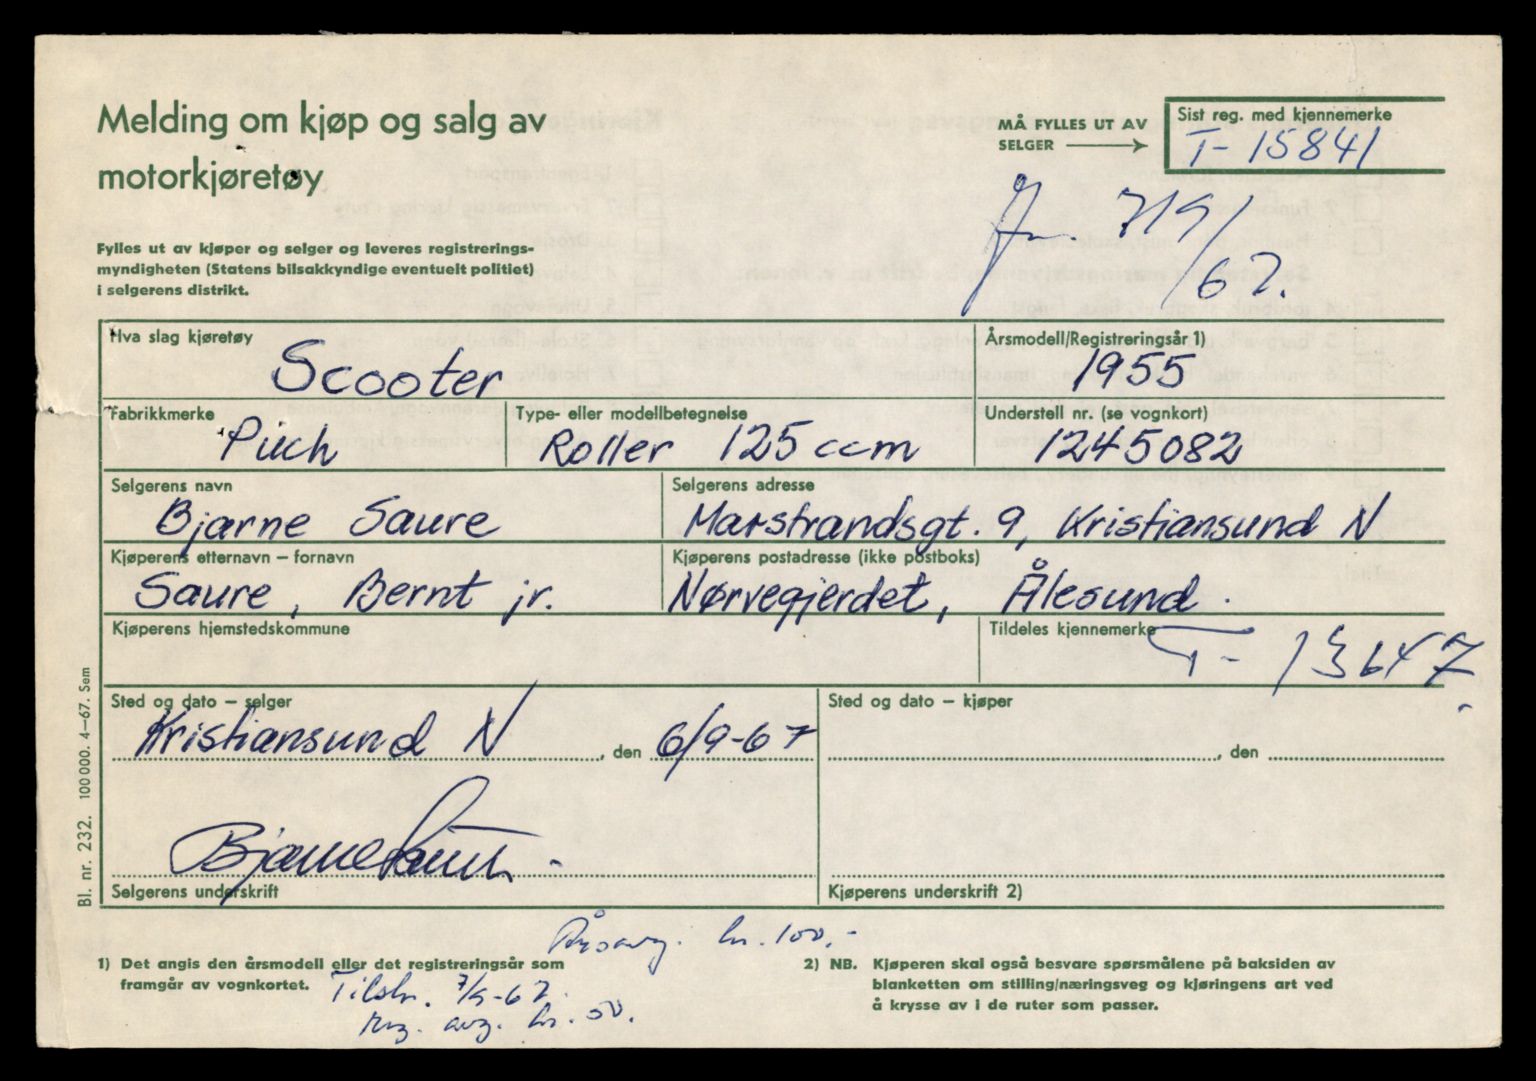 Melding om kjøp og salg av
motorkjøretøy
MÅ FYLLES UT AV
SELGER
Sist reg. med kjennemerke
T- 15841
7/9/
67.
Fylles ut av kjøper og selger og leveres registrerings-
myndigheten (Statens bilsakkyndige eventuelt politiet)
i selgerens distrikt.
Hva slag kjøretøy
Scooter
Årsmodell/Registreringsår 1)
1955
Fabrikkmerke
Puch
Type- eller modellbetegnelse
Roller 125 ccm
Understell nr. (se vognkort)
1245082
Selgerens navn
Bjarne Saure
Selgerens adresse
Marstrandsgt. 9, Kristiansund N
Kjøperens etternavn – fornavn
Saure, Bernt jr.
Kjøperens postadresse (ikke postboks)
Nørvegjerdet, Ålesund.
Kjøperens hjemstedskommune
Tildeles kjennemerke
T- 13647.
Sted og dato – selger
Kristiansund N, den 6/9-67
Sted og dato – kjøper
, den
Bjarne Saure
Selgerens underskrift
Kjøperens underskrift 2)
Bl. nr. 232. 100 000. 4–67. Sem
Årsavg. kr. 100,-
1) Det angis den årsmodell eller det registreringsår som
framgår av vognkortet.
Tilskr. 7/9-67.
reg. avg. kr. 50.
2) NB. Kjøperen skal også besvare spørsmålene på baksiden av
blanketten om stilling/næringsveg og kjøringens art ved
å krysse av i de ruter som passer.